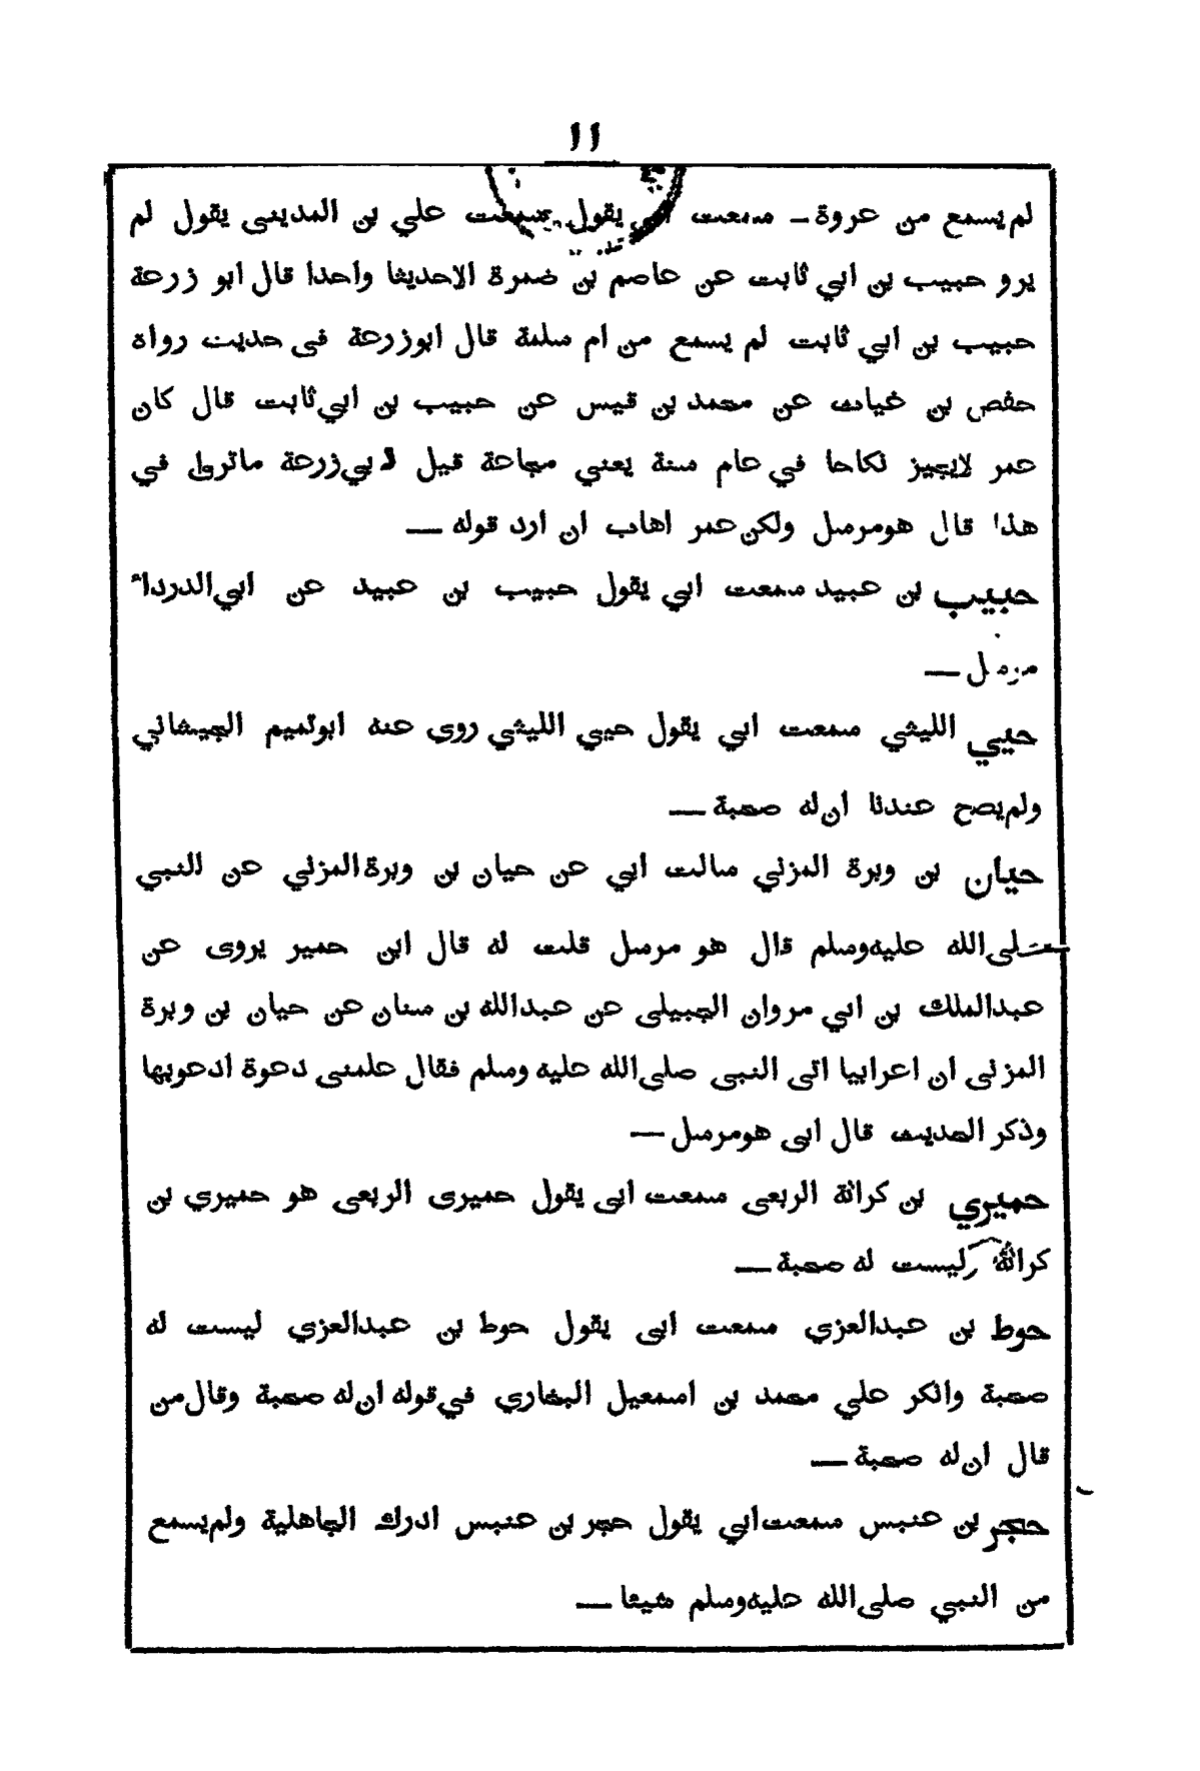 ١١
لم يسمع من عروة ــ سمعت ابي يقول سمعت علي بن المديني يقول لم
يرو حبيب بن ابي ثابت عن عاصم بن ضمرة الاحديثا واحدا قال ابو زرعة
حبيب بن ابي ثابت لم يسمع من ام سلمة قال ابوزرعة فى حديث رواه
حفص بن غياث عن محمد بن قيس عن حبيب بن ابي ثابت قال كان
عمر لايجيز نكاحا في عام سنة يعني مجاعة قيل لابي زرعة ماترى في
هذا قال هومرسل ولكن عمر اهاب ان ارد قوله ــ
حبيب بن عبيد سمعت ابي يقول حبيب بن عبيد عن ابي الدرداء
مرسل ــ
حيي الليثي سمعت ابي يقول حيي الليثي روى عنه ابوتميم الجيشاني
ولم يصح عندنا ان له صحبة ــ
حيان بن وبرة المزني سالت ابي عن حيان بن وبرة المزني عن النبي
صلى الله عليه وسلم قال هو مرسل قلت له قال ابن حمير يروى عن
عبدالملك بن ابي مروان الجبيلى عن عبدالله بن سنان عن حيان بن وبرة
المزنى ان اعرابيا اتى النبى صلى الله عليه وسلم فقال علمنى دعوة ادعوبها
وذكر الحديث قال ابى هومرسل ــ
حميري بن كراثة الربعى سمعت ابى يقول حميرى الربعى هو حميري بن
كراثة ليست له صحبة ــ
حوط بن عبدالعزي سمعت ابى يقول حوط بن عبدالعزي ليست له
صحبة وانكر علي محمد بن اسمعيل البخارى في قوله ان له صحبة وقال من
قال ان له صحبة ــ
حجر بن عنبس سمعت ابي يقول حجر بن عنبس ادرك الجاهلية ولم يسمع
من النبي صلى الله عليه وسلم شيئا ــ